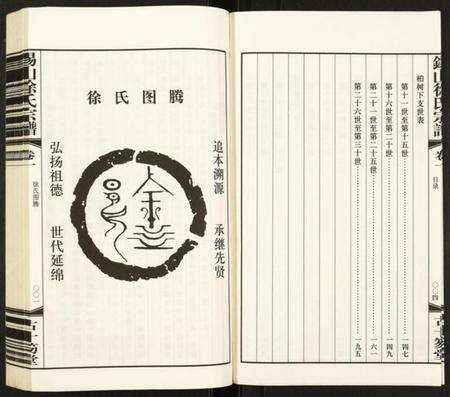 柏树下支世表
第十一世至第十五世……一四七
第十六世至第二十世……一四九
第二十一世至第二十五世……一六一
第二十六世至第三十世……一九五
锡山徐氏宗谱
卷一
目录
〇〇四
古十笏堂
徐氏图腾
追本溯源
承继先贤
弘扬祖德
世代延绵
锡山徐氏宗谱
卷一
徐氏图腾
〇〇一
古十笏堂